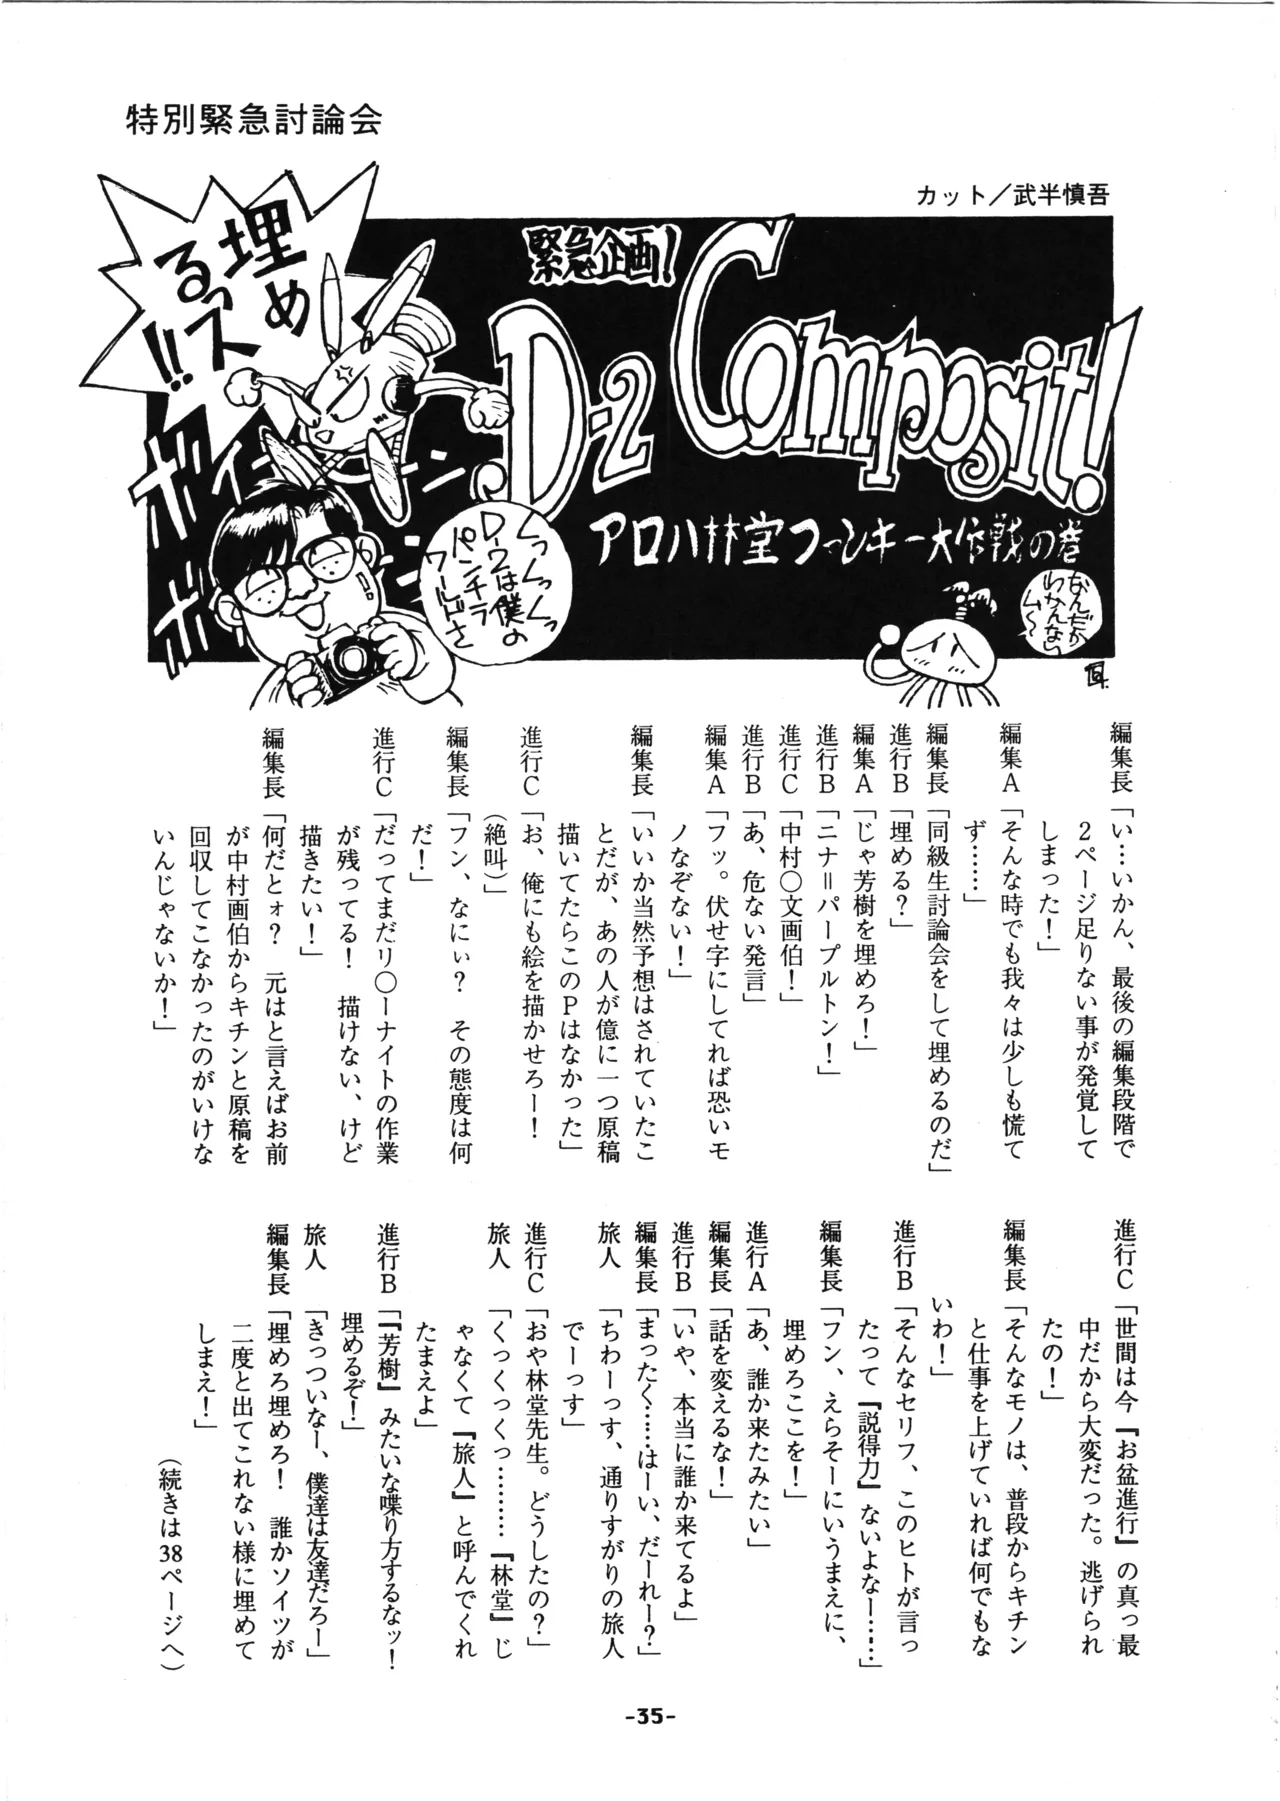 特別緊急討論会
カット／武半慎吾
緊急企画!
D-2 Composit!
アロハ林堂ファンキー大作戦の巻
埋め
るっス
!!
ボイーーン
ボボ
くっくっくっ
D-2は僕の
パンチラ
ワールドさ
なんだか
わかんない
ム〜
編集長「い…いかん、最後の編集段階で
２ページ足りない事が発覚して
しまった！」
編集Ａ「そんな時でも我々は少しも慌て
ず……」
編集長「同級生討論会をして埋めるのだ」
進行Ｂ「埋める？」
編集Ａ「じゃ芳樹を埋めろ！」
進行Ｂ「ニナ＝パープルトン！」
進行Ｃ「中村〇文画伯！」
進行Ｂ「あ、危ない発言」
編集Ａ「フッ。伏せ字にしてれば恐いモ
ノなぞない！」
編集長「いいか当然予想はされていたこ
とだが、あの人が億に一つ原稿
描いてたらこのＰはなかった」
進行Ｃ「お、俺にも絵を描かせろー！
（絶叫）」
編集長「フン、なにぃ？　その態度は何
だ！」
進行Ｃ「だってまだリ〇ーナイトの作業
が残ってる！　描けない、けど
描きたい！」
編集長「何だとォ？　元はと言えばお前
が中村画伯からキチンと原稿を
回収してこなかったのがいけな
いんじゃないか！」
進行Ｃ「世間は今『お盆進行』の真っ最
中だから大変だった。逃げられ
たの！」
編集長「そんなモノは、普段からキチン
と仕事を上げていれば何でもな
いわ！」
進行Ｂ「そんなセリフ、このヒトが言っ
たって『説得力』ないよなー……」
編集長「フン、えらそーにいうまえに、
埋めろここを！」
進行Ａ「あ、誰か来たみたい」
編集長「話を変えるな！」
進行Ｂ「いや、本当に誰か来てるよ」
編集長「まったく……はーい、だーれー？」
旅人　「ちわーっす、通りすがりの旅人
でーっす」
進行Ｃ「おや林堂先生。どうしたの？」
旅人　「くっくっくっ………『林堂』じ
ゃなくて『旅人』と呼んでくれ
たまえよ」
進行Ｂ「『芳樹』みたいな喋り方するなッ！
埋めるぞ！」
旅人　「きっついなー、僕達は友達だろー」
編集長「埋めろ埋めろ！　誰かソイツが
二度と出てこれない様に埋めて
しまえ！」
（続きは38ページへ）
-35-